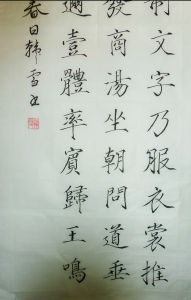 制文字乃服衣裳推
發商湯坐朝問道垂
邇壹體率賓歸王鳴
春日韓雪書